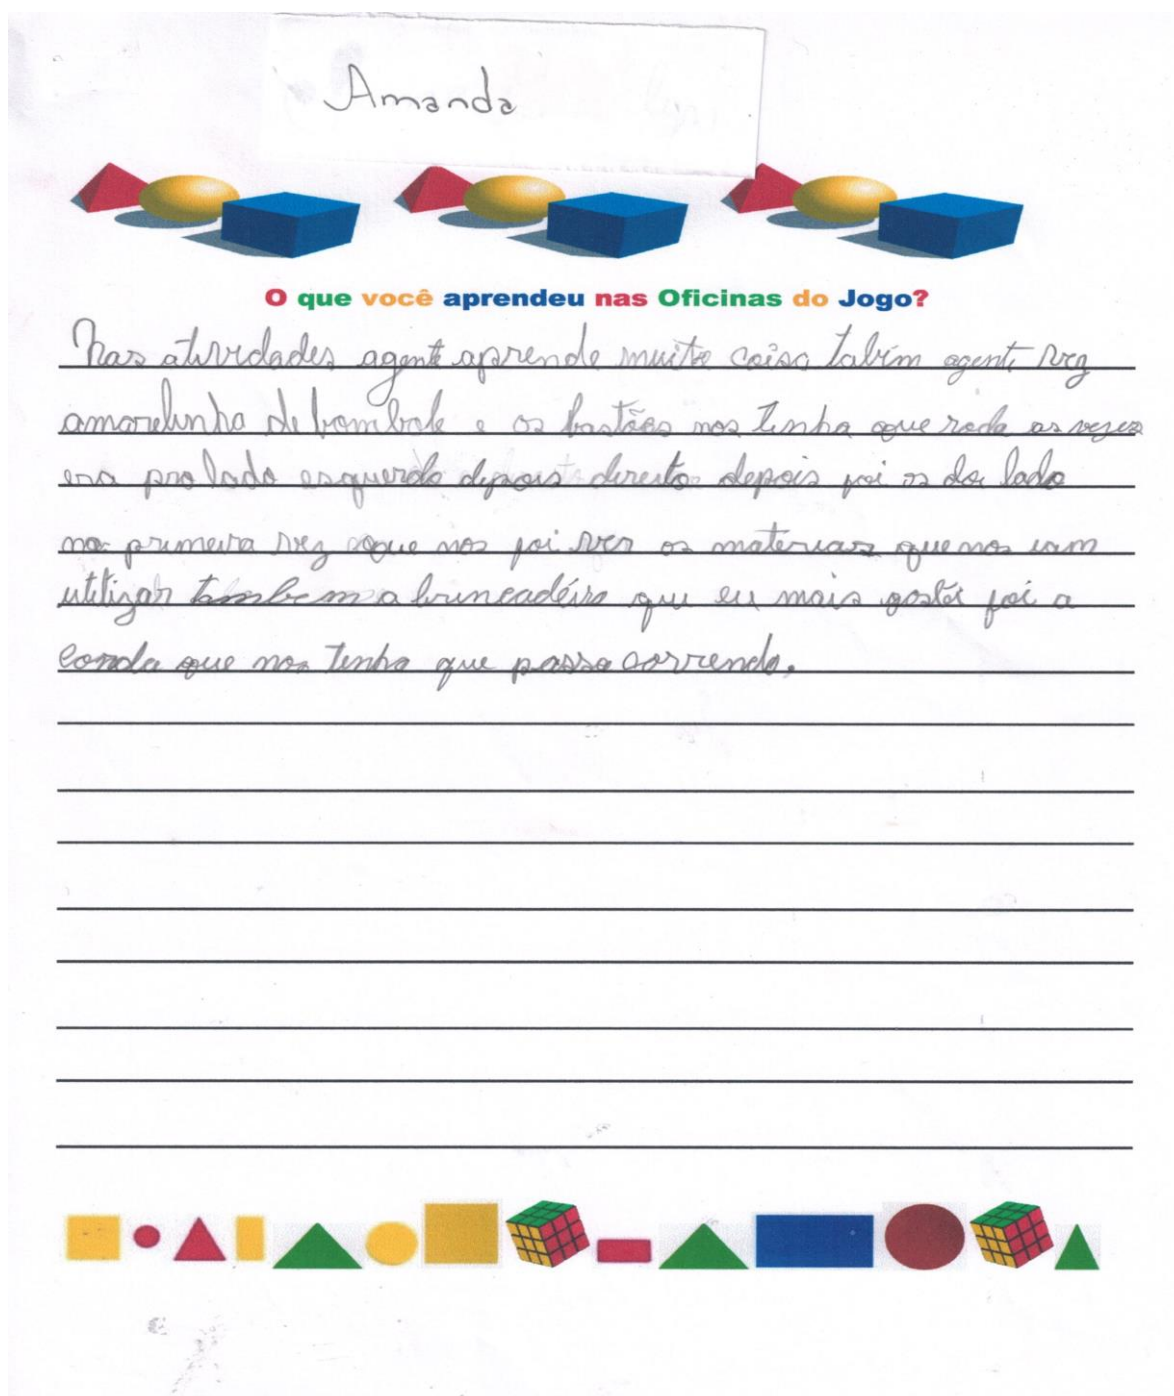 Amanda
O que você aprendeu nas Oficinas do Jogo?
Nas atividades agente aprende muita coisa tabím agente vez
amarelinha de bombole e os bastões nos tinha que roda as vezes
era pro lado esquerdo depois direito depois foi os doi lado
na primeira vez que nos foi ver os materiais que nos iam
utilizar tambem a brincadeira que eu mais gostei foi a
corda que nos tinha que passa correndo.